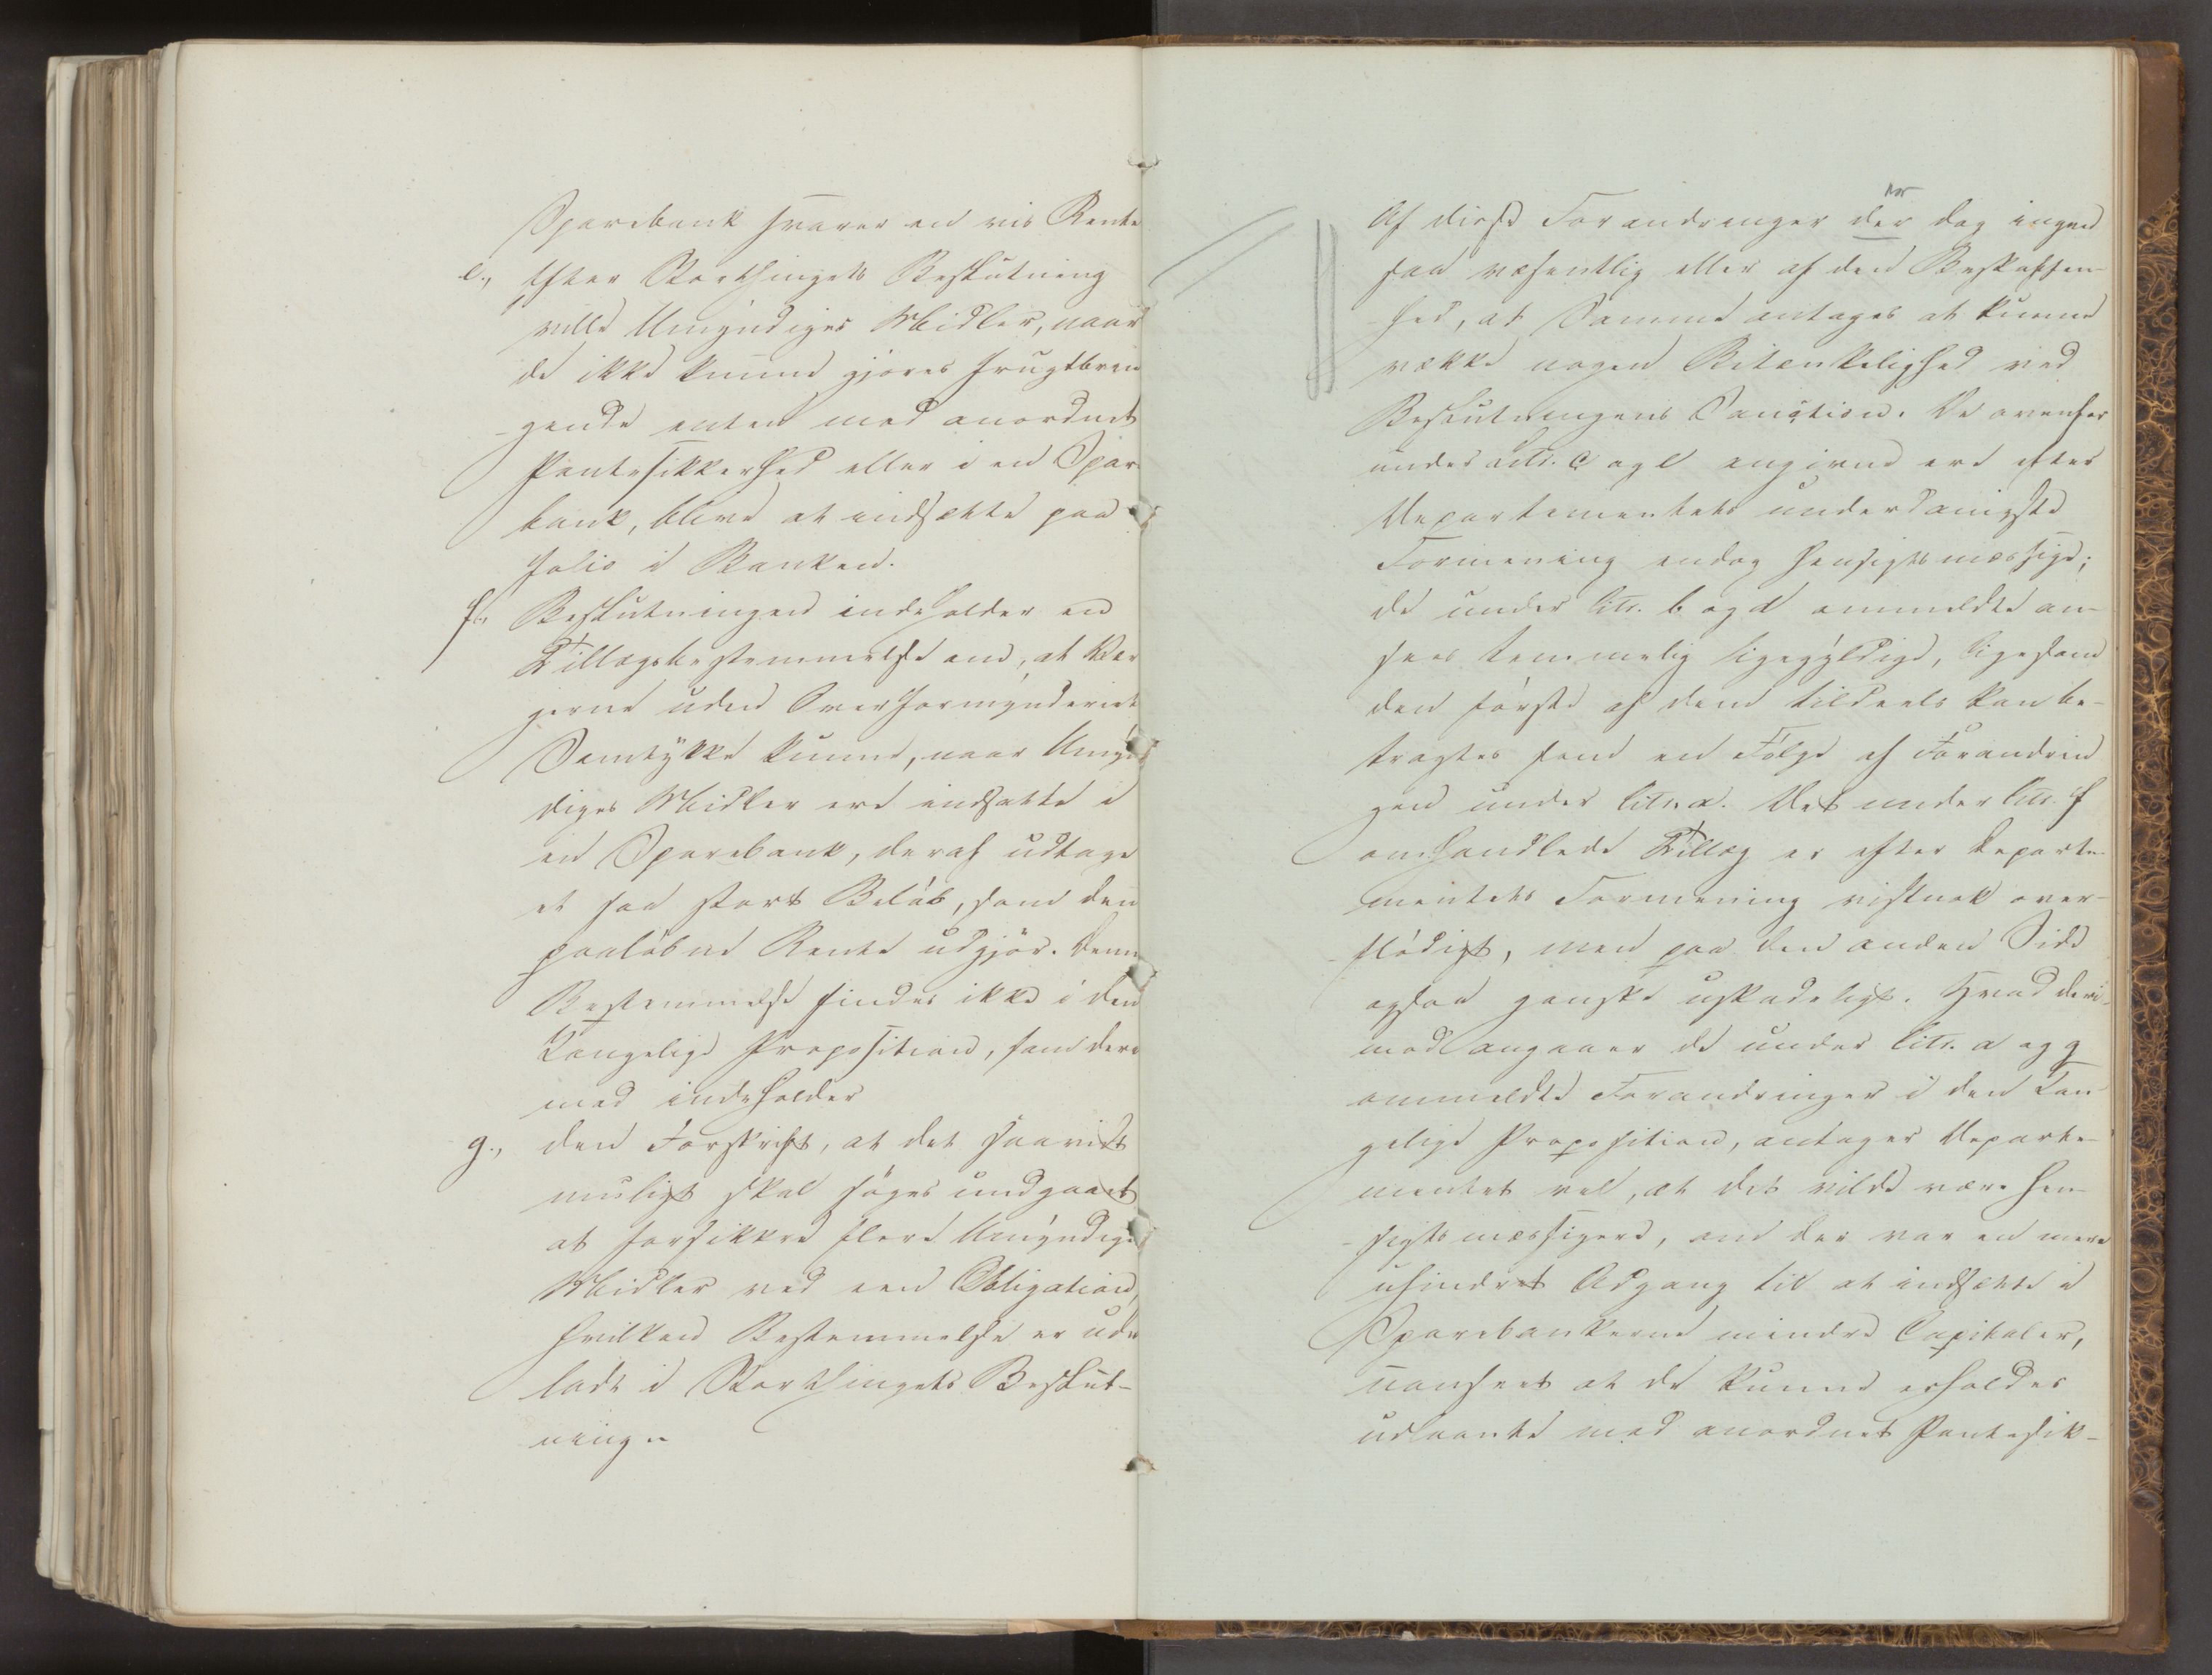 Sparebank svarer en vis Rente
e., Efter Storthingets Beslutning
ville Umyndiges Midler, naar
de ikke kunne gjøres frugtbrin
gende enten mod anordnet
Pantesikkerhed eller i en Spare
bank, blive at indsætte paa
Folio i Banken.
f., Beslutningen indeholder en
Tillægsbestemmelse om, at Vær
gerne uden Overformynderiets
Samtykke kunne, naar Umyn
diges Midler ere indsatte i
en Sparebank, deraf udtage
et saa stort Beløb, som den
paaløbne Rente udgjør. Denne
Bestemmelse findes ikke i den
Kongelige Proposition, som der
mod indeholder
g., den Forskrift, at det saavidt
muligt skal søges undgaaet
at forsikkre flere Umyndiges
Midler ved een Obligation,
hvilken Bestemmelse er ude
ladt i Storthingets Beslut-
ning.
Af disse Forandringer der dog ingen
er
saa væsentlig eller af den Beskaffen-
hed, at Samme antages at kunne
vække nogen Betænkelighed ved
Beslutningens Sanction. De ovenfor
under Litr. c og e angivne ere efter
Departementets underdanigste
Formening endog hensigtsmæssige;
de under litr. b og d ommeldte an-
sees temmelig ligegyldige, ligesom
den første af dem tildeels kan be-
tragtes som en Følge af Forandrin
gen under litr. a. Det under litr. f
omhandlede Tillæg er efter Departe-
mentets Formening vistnok over-
flødigt, men paa den anden Side
ogsaa ganske uskadeligt. Hvad deri-
mod angaaer de under litr. a og g
ommeldte Forandringer i den Kon-
gelige Proposition, antager Departe-
mentet vel, at det vilde være hen-
sigtsmæssigere, om der var en mere
uhindret Adgang til at indsætte i
Sparebankerne mindre Capitaler,
uanseet at de kunne erholdes
udlaante mod anordnet Pantesik-